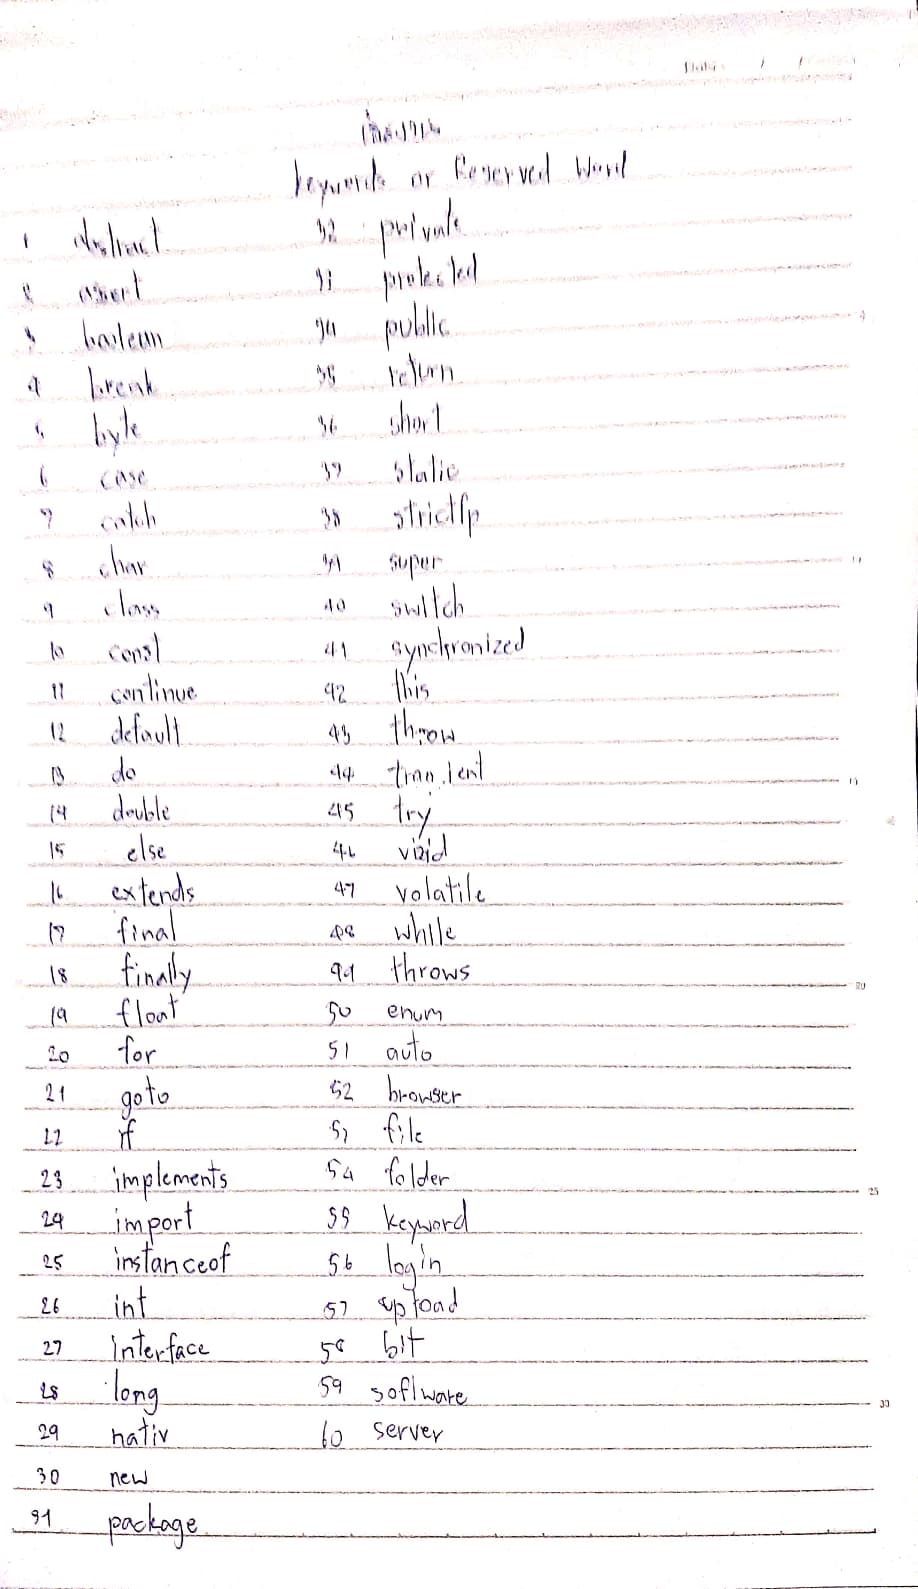 Date / /
keywords or Reserved Word
1 abstract
2 assert
3 boolean
4 break
5 byte
6 case
7 catch
8 char
9 class
10 const
11 continue
12 default
13 do
14 double
15 else
16 extends
17 final
18 finally
19 float
20 for
21 goto
22 if
23 implements
24 import
25 instanceof
26 int
27 interface
28 long
29 nativ
30 new
31 package
32 private
33 protected
34 public
35 return
36 short
37 static
38 strictfp
39 super
40 switch
41 synchronized
42 this
43 throw
44
45 try
46
47 volatile
48 while
49 throws
50 enum
51 auto
52 browser
53 file
54 folder
55 keyword
56 login
57
58 bit
59 software
60 server
20
25
30